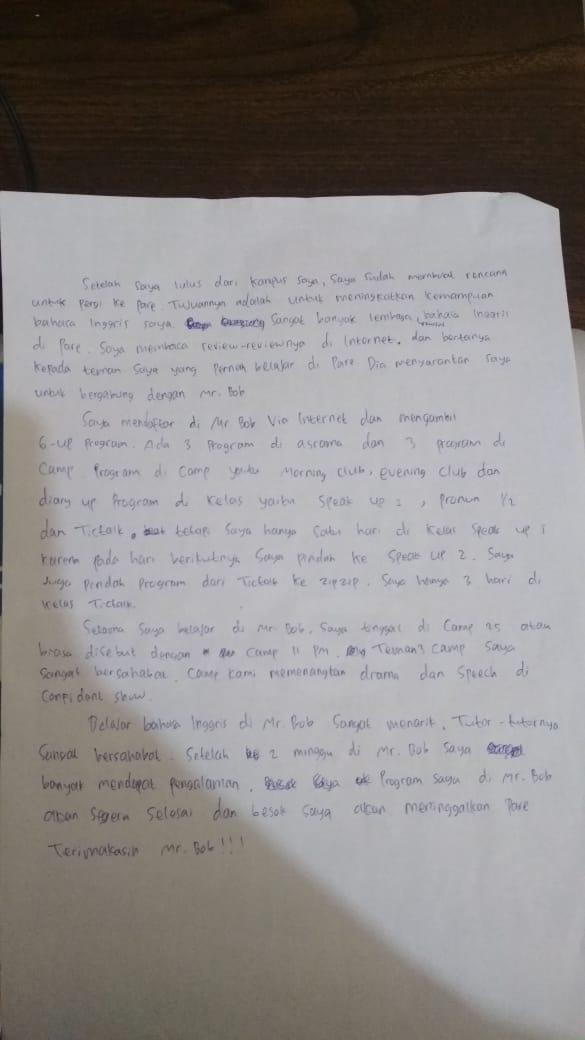 Setelah saya lulus dari kampus saya, saya sudah membuat rencana
untuk pergi ke Pare. Tujuannya adalah untuk meningkatkan kemampuan
bahasa Inggris saya. Sangat banyak lembaga bahasa Inggris
di Pare. Saya membaca review-reviewnya di Internet. dan bertanya
kepada teman saya yang pernah belajar di Pare. Dia menyarankan saya
untuk bergabung dengan Mr. Bob
Saya mendaftar di Mr Bob Via Internet dan mengambil
6-up program. Ada 3 Program di asrama dan 3 program di
Camp. Program di Camp yaitu Morning Club, Evening Club dan
diary up Program di kelas yaitu Speak up 1, Pronun 1/2
dan Tictalk, tetapi saya hanya satu hari di kelas Speak up 1
karena pada hari berikutnya saya pindah ke Speak up 2. Saya
Juga Pindah Program dari Tictalk ke zipzip. Saya hanya 3 hari di
kelas Tictalk.
Selama saya belajar di Mr. Bob, Saya tinggal di Camp 25 atau
biasa disebut dengan Camp 11 PM. Teman2 Camp saya
sangat bersahabat. Camp kami memenangkan drama dan Speech di
Confidant show.
Belajar bahasa Inggris di Mr. Bob Sangat menarik. Tutor-tutornya
Sangat bersahabat. Setelah 2 minggu di Mr. Bob saya
banyak mendapat pengalaman. Program saya di Mr. Bob
akan segera selesai dan besok saya akan meninggalkan Pare
Terimakasih Mr. Bob!!!